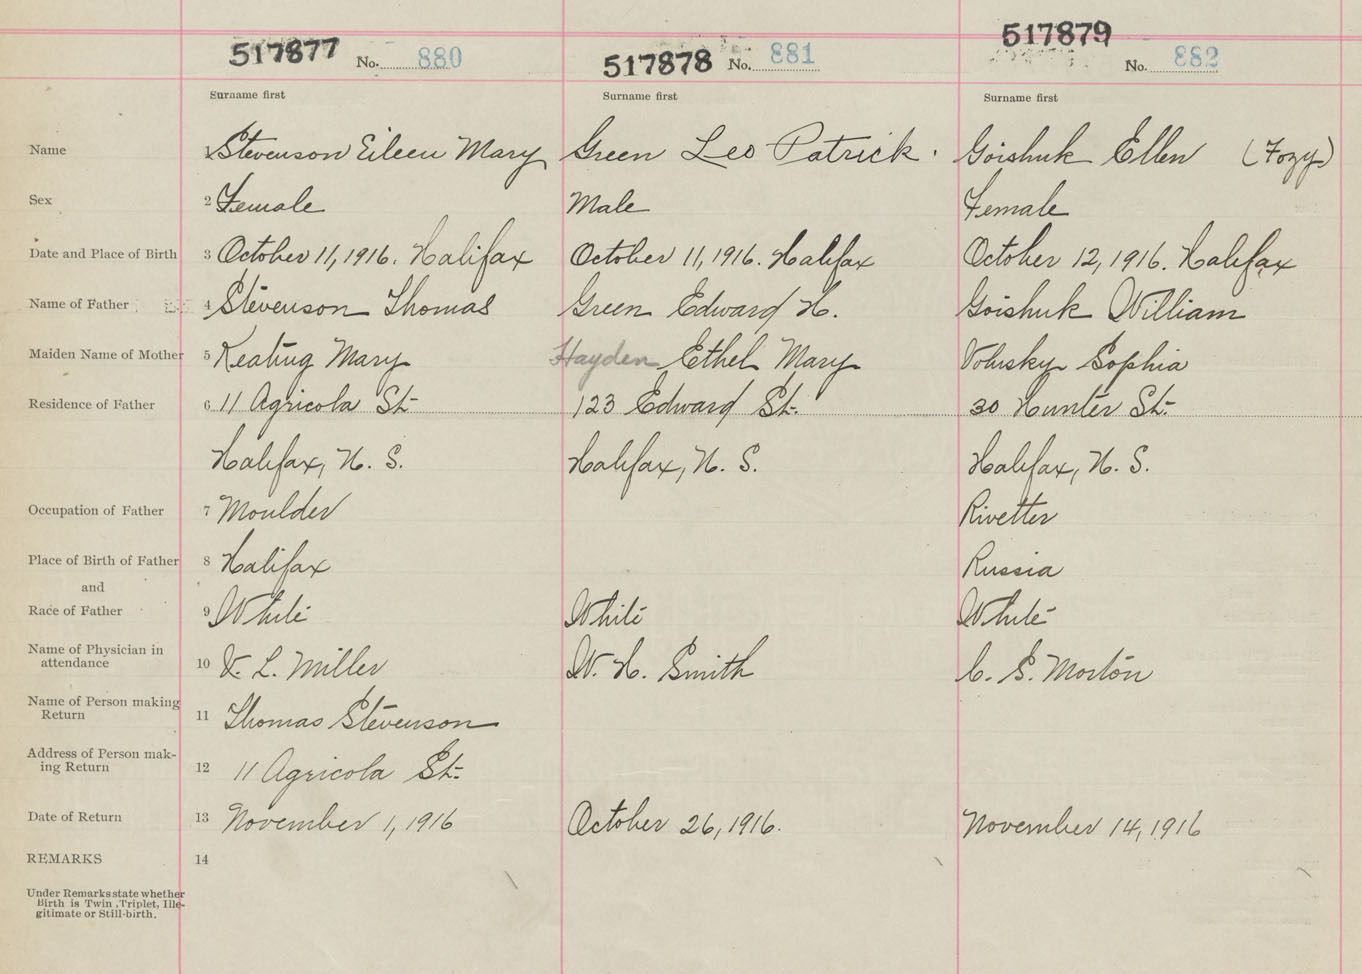 517877 No. 880 517878 No. 881 517879 No. 882
Surname first Surname first Surname first
Name 1 Stevenson Eileen Mary Green Leo Patrick. Goishuk Ellen (Fozy)
Sex 2 Female Male Female
Date and Place of Birth 3 October 11, 1916. Halifax October 11, 1916. Halifax October 12, 1916. Halifax
Name of Father 4 Stevenson Thomas Green Edward H. Goishuk William
Maiden Name of Mother 5 Keating Mary Hayden Ethel Mary Sophia
Residence of Father 6 11 Agricola St. 123 Edward St. 30 Hunter St.
Halifax, N. S. Halifax, N. S. Halifax, N. S.
Occupation of Father 7 Moulder Rivetter
Place of Birth of Father 8 Halifax Russia
and
Race of Father 9 White White White
Name of Physician in
attendance 10 V. L. Miller W. H. Smith C. S. Morton
Name of Person making
Return 11 Thomas Stevenson
Address of Person mak-
ing Return 12 11 Agricola St.
Date of Return 13 November 1, 1916 October 26, 1916. November 14, 1916
REMARKS 14
Under Remarks state whether
Birth is Twin, Triplet, Ille-
gitimate or Still-birth.